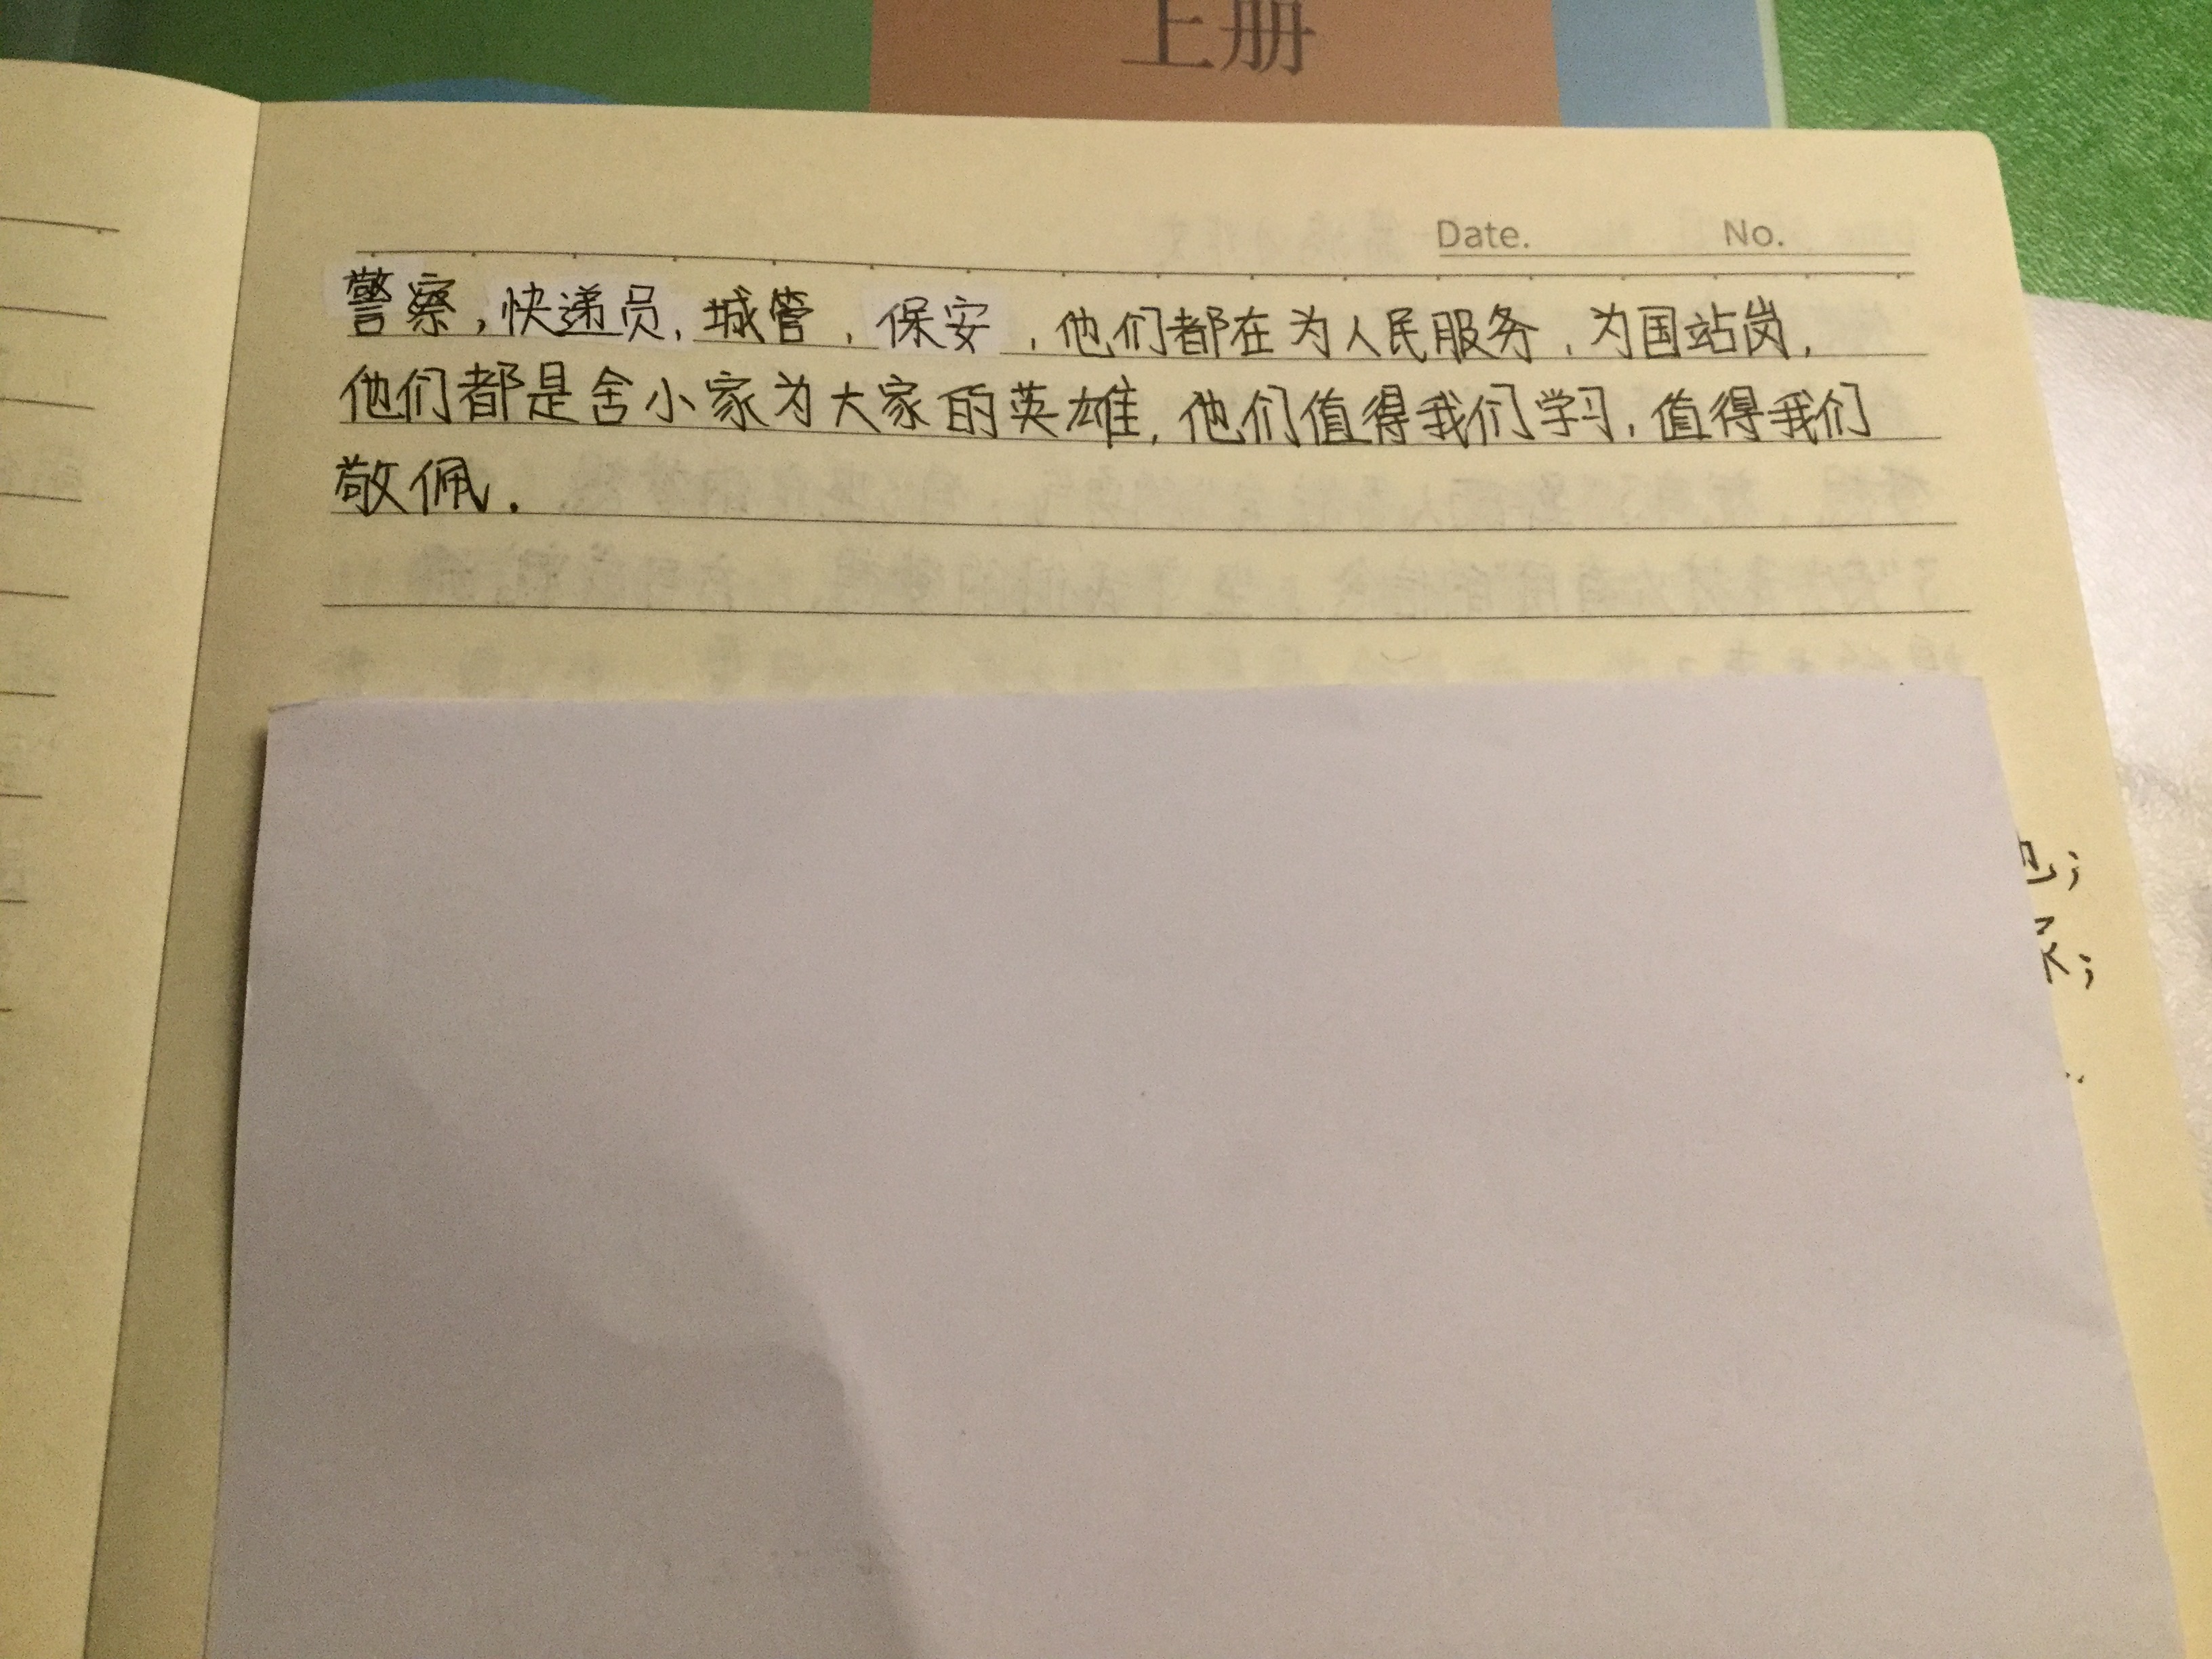 上册
Date. No.
警察,快递员,城管,保安,他们都在为人民服务,为国站岗,
他们都是舍小家为大家的英雄,他们值得我们学习,值得我们
敬佩.